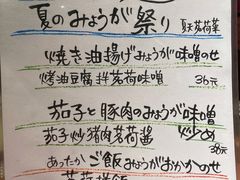 夏のみょうが祭り 夏天茗荷菜
焼き油揚げみょうが味噌のせ
烤油豆腐拌茗荷味噌 36元
茄子と豚肉のみょうが味噌
炒め
茄子炒猪肉茗荷醤
38元
あったかご飯みょうがおかかのせ
茗荷拌飯